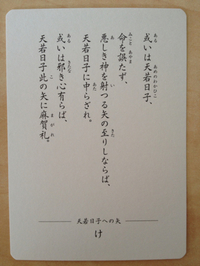 或いは天若日子、
命を誤たず、
悪しき神を射つる矢の至りしならば、
天若日子に中らざれ。
或いは邪き心有らば、
天若日子此の矢に麻賀礼。
天若日子への矢
け